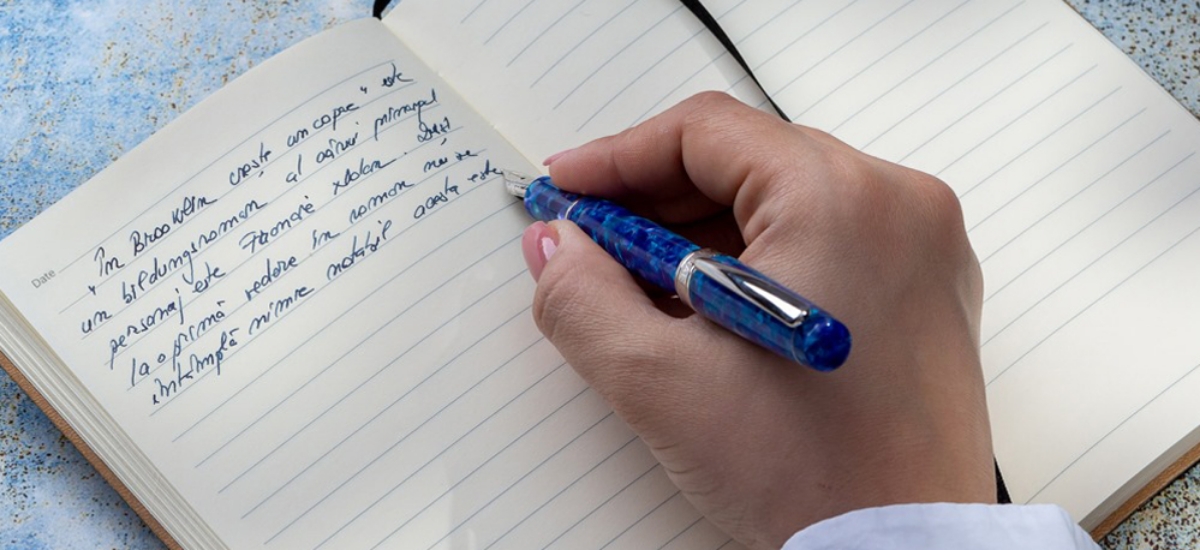 Date
"În Brooklin crește un copac" este
un bildungsroman, al cărui principal
personaj este Francie Nolan. Deși
la o primă vedere în roman nu se
întâmplă nimic notabil acesta este